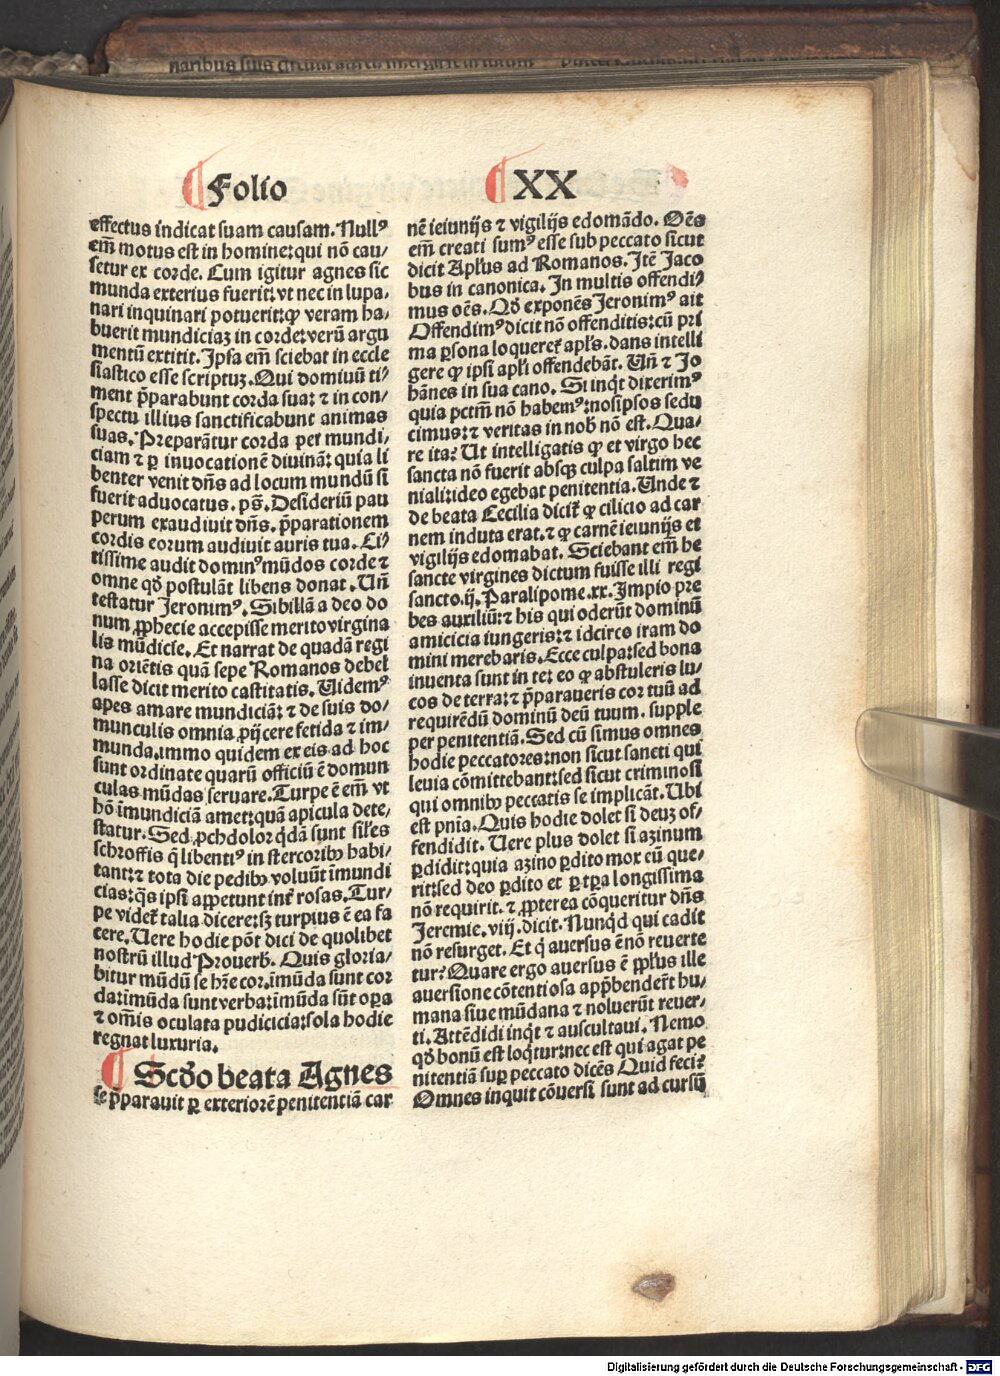 Folio XX
effectus indicat suam causam. Nullꝰ
em̄ motus est in homine: qui nō cau⸗
setur ex corde. Cum igitur agnes sic
munda exterius fuerit: vt nec in lupa⸗
nari inquinari potuerit: ꝙ veram ha⸗
buerit mundiciaꝫ in corde: verū argu
mentū extitit. Ipsa em̄ sciebat in eccle
siastico esse scriptuꝫ. Qui dominū ti⸗
ment p̄parabunt corda sua: ⁊ in con⸗
spectu illius sanctificabunt animas
suas. Preparātur corda per mundi⸗
ciam ⁊ ꝑ inuocationē diuinā: quia li
benter venit dn̄s ad locum mundū si
fuerit aduocatus. ps̄. Desideriū pau
perum exaudiuit dn̄s. p̄parationem
cordis eorum audiuit auris tua. Ci⸗
tissime audit dominꝰ mūdos corde ⁊
omne qđ postulāt libens donat. Un̄
testatur Jeronimꝰ. Sibillā a deo do
num ꝓphecie accepisse merito virgina
lis mūdicie. Et narrat de quadā regi
na oriētis quā sepe Romanos debel
lasse dicit merito castitatis. Uidemꝰ
apes amare mundiciā: ⁊ de suis do⸗
munculis omnia ꝓijcere fetida ⁊ im⸗
munda. immo quidem ex eis ad hoc
sunt ordinate quarū officiū ē domun
culas mūdas seruare. Turpe ē em̄ vt
hō īmundiciā amet: quā apicula dete⸗
statur. Sed ꝓchdolor q̄dā sunt sil̄es
schroffis q̄ libentiꝰ in stercoribꝰ habi⸗
tant: ⁊ tota die pedibꝰ voluūt īmundi
cias: q̄s ipsi appetunt int̄ rosas. Tur⸗
pe videt̄ talia dicere: sꝫ turpius ē ea fa
cere. Uere hodie pōt dici de quolibet
nostrū illud Prouerb̄. Quis gloria⸗
bitur mūdū se hr̄e cor. īmūda sunt cor
da: īmūda sunt verba: īmūda sūt oꝑa
⁊ om̄is oculata pudicicia: sola hodie
regnat luxuria.
Scđo beata Agnes
se p̄parauit ꝑ exteriorē penitentiā car
nē ieiunijs ⁊ vigilijs edomādo. Oēs
em̄ creati sumꝰ esse sub peccato sicut
dicit Apl̄us ad Romanos. Itē Jaco
bus in canonica. In multis offendi⸗
mus oēs. Qđ exponēs Jeronimꝰ ait
Offendimꝰ dicit nō offenditis: cū pri
ma ꝑsona loqueret̄ apl̄s. dans intelli
gere ꝙ ipsi apl̄i offendebāt. Un̄ ⁊ Jo
hānes in sua cano. Si inq̄t dixerimꝰ
quia pctm̄ nō habemꝰ: nosipsos sedu
cimus: ⁊ veritas in nob̄ nō est. Qua⸗
re ita? Ut intelligatis ꝙ et virgo hec
sancta nō fuerit absqꝫ culpa saltim ve
niali: ideo egebat penitentia. Unde ⁊
de beata Cecilia dicit̄ ꝙ cilicio ad car
nem induta erat. ⁊ ꝙ carnē ieiunijs et
vigilijs edomabat. Sciebant em̄ he
sancte virgines dictum fuisse illi regi
sancto. ij. Paralipome. xx. Impio pre
bes auxiliū: ⁊ his qui oderūt dominū
amicicia iungeris: ⁊ idcirco iram do
mini merebaris. Ecce culpa: sed bona
inuenta sunt in te: eo ꝙ abstuleris lu⸗
cos de terra: ⁊ p̄paraueris cor tuū ad
requirēdū dominū deū tuum. supple
per penitentiā. Sed cū simus omnes
hodie peccatores: non sicut sancti qui
leuia cōmittebant: sed sicut criminosi
qui omnibꝰ peccatis se implicāt. Ubi
est pn̄ia. Quis hodie dolet si deuꝫ of⸗
fendidit. Uere plus dolet si aꝫinum
ꝑdidit: quia aꝫino ꝑdito mox cū que⸗
rit: sed deo ꝑdito et ꝑ tꝑa longissima
nō requirit. ⁊ ꝓpterea cōqueritur dn̄s
Jeremie. viij. dicit. Nunq̄d qui cadit
nō resurget. Et q̄ auersus ē nō reuerte
tur? Quare ergo auersus ē ppl̄us ille
auersione cōtentiosa app̄henderūt hu⸗
mana siue mūdana ⁊ noluerūt reuer⸗
ti. Attēdidi inq̄t ⁊ auscultaui. Nemo
qđ bonū est loq̄tur: nec est qui agat pe
nitentiā suꝑ peccato dicēs Quid feci?
Omnes inquit cōuersi sunt ad cursū
Digitalisierung gefördert durch die Deutsche Forschungsgemeinschaft - DFG